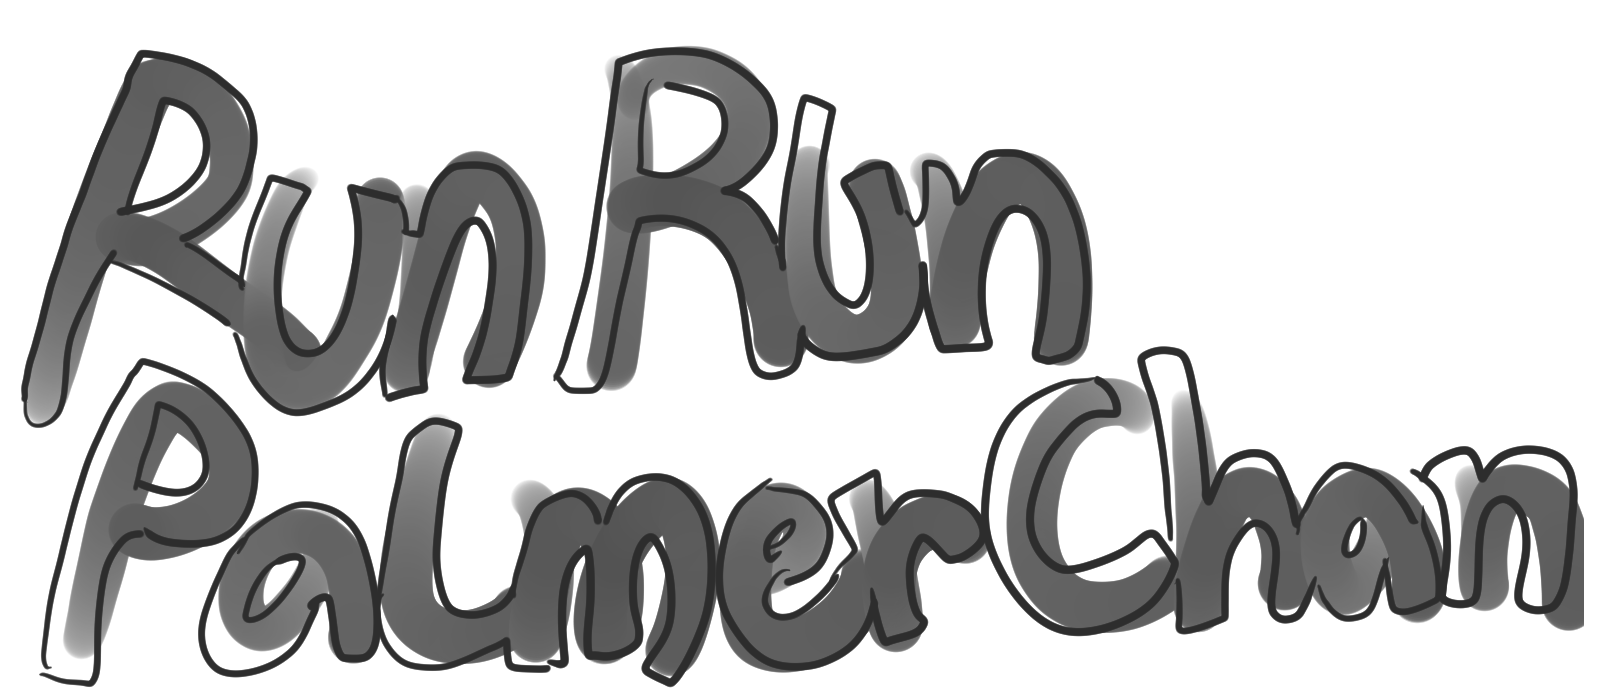 Run Run
Palmer Chan